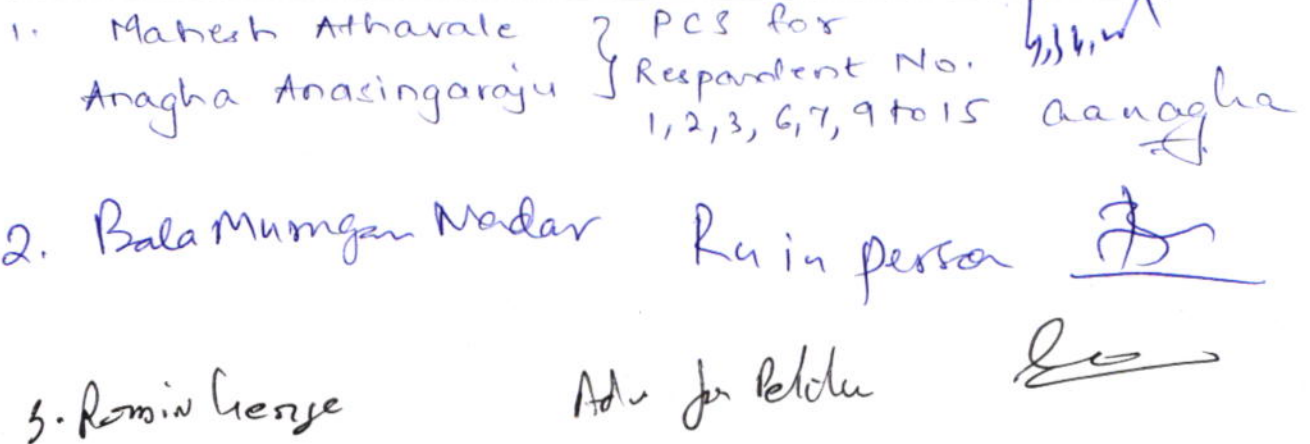 1. Mahesh Athavale } PCS for
Anagha Anasingaraju } Respondent No.
1, 2, 3, 6, 7, 9 to 15 aanagha
2. Bala Murugan Nadar in person
3. Romin George Adv for